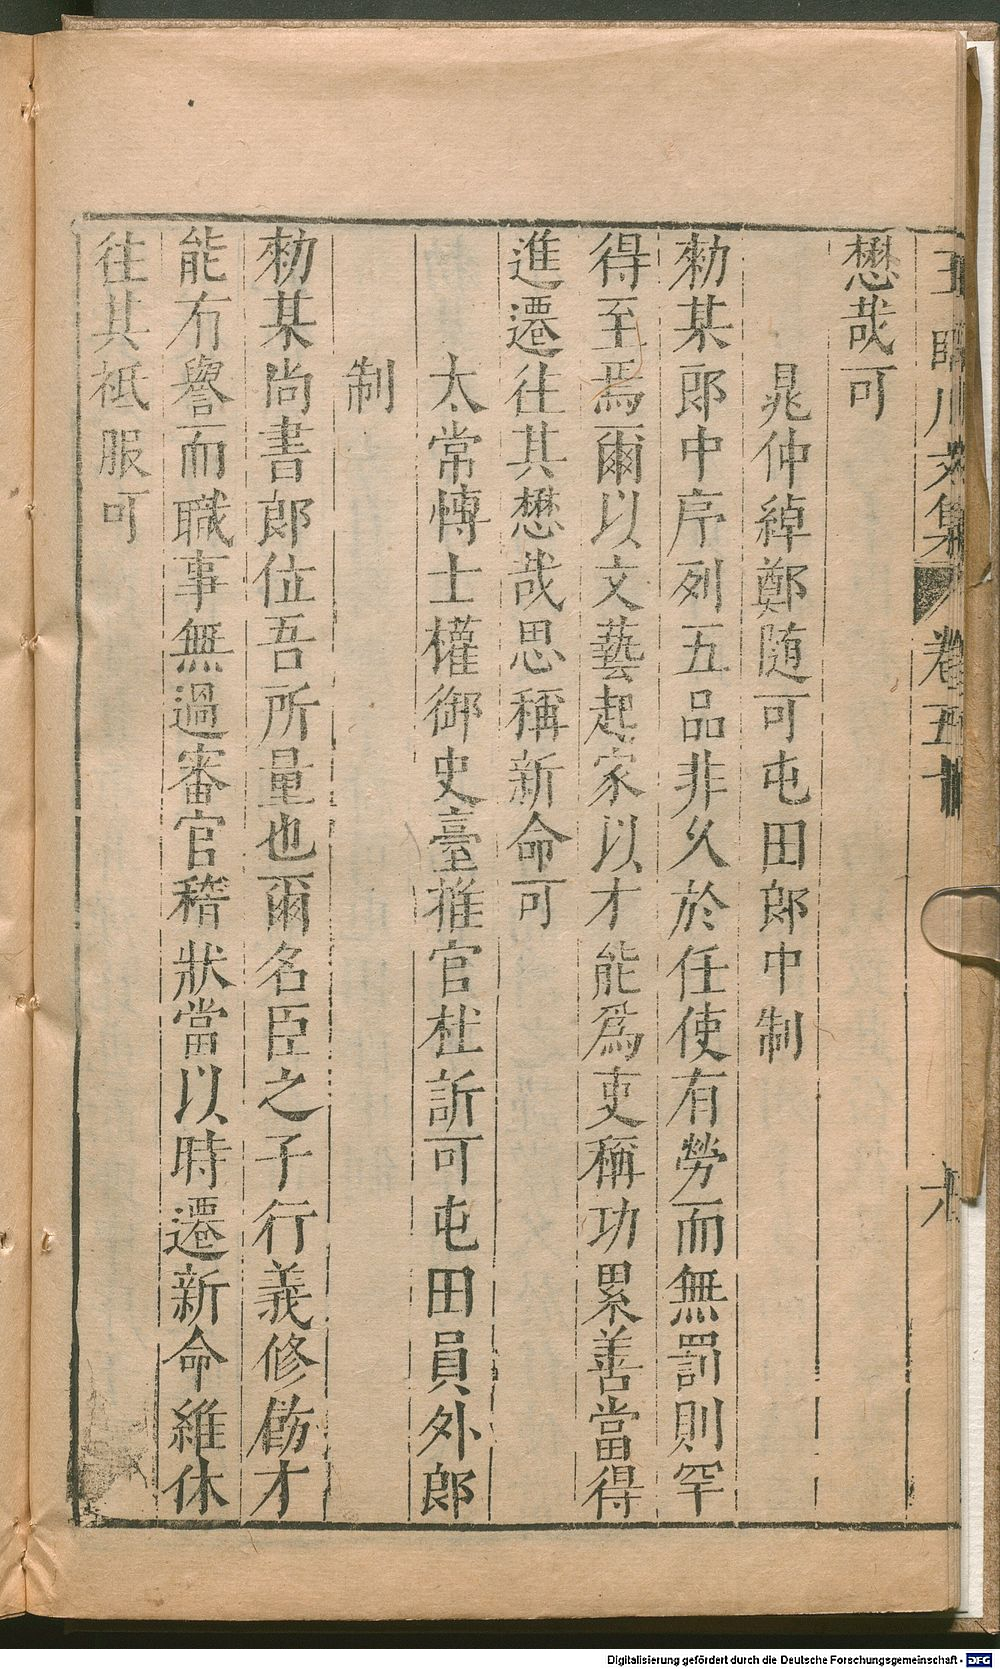 王臨川文集 卷五十 九
懋哉可
晁仲綽鄭隨可屯田郎中制
勑某郎中序列五品非久於任使有勞而無罰則罕
得至焉爾以文藝起家以才能爲吏稱功累善當得
進遷往其懋哉思稱新命可
太常博士權御史臺推官杜訢可屯田員外郎
制
勑某尚書郎位吾所量也爾名臣之子行義修飭才
能有譽而職事無過審官稽狀當以時遷新命維休
往其祗服可
Digitalisierung gefördert durch die Deutsche Forschungsgemeinschaft - DFG